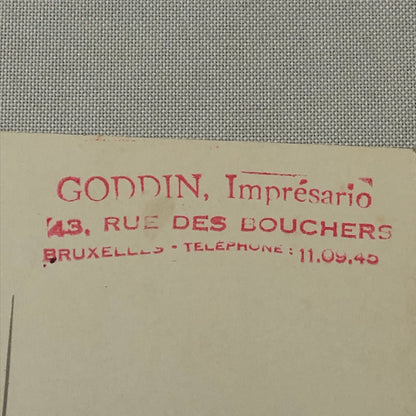 GODDIN, Imprésario
43, RUE DES BOUCHERS
BRUXELLES - TELEPHONE : 11.09.45